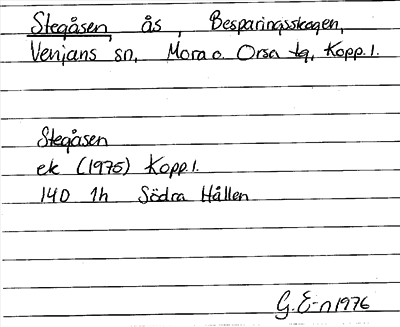 Stegåsen, ås, Besparingsskogen,
Venjans sn, Mora o. Orsa tg, Kopp.l.
Stegåsen
ek (1975) Kopp.l.
14D 1h Södra Hållen
G. E-n 1976